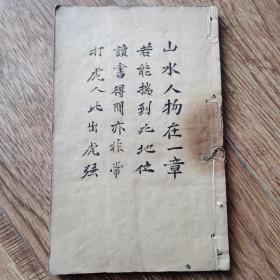 山水人物在一章
若能揣到此地位
讀書得間亦非常
打虎人比出虎强